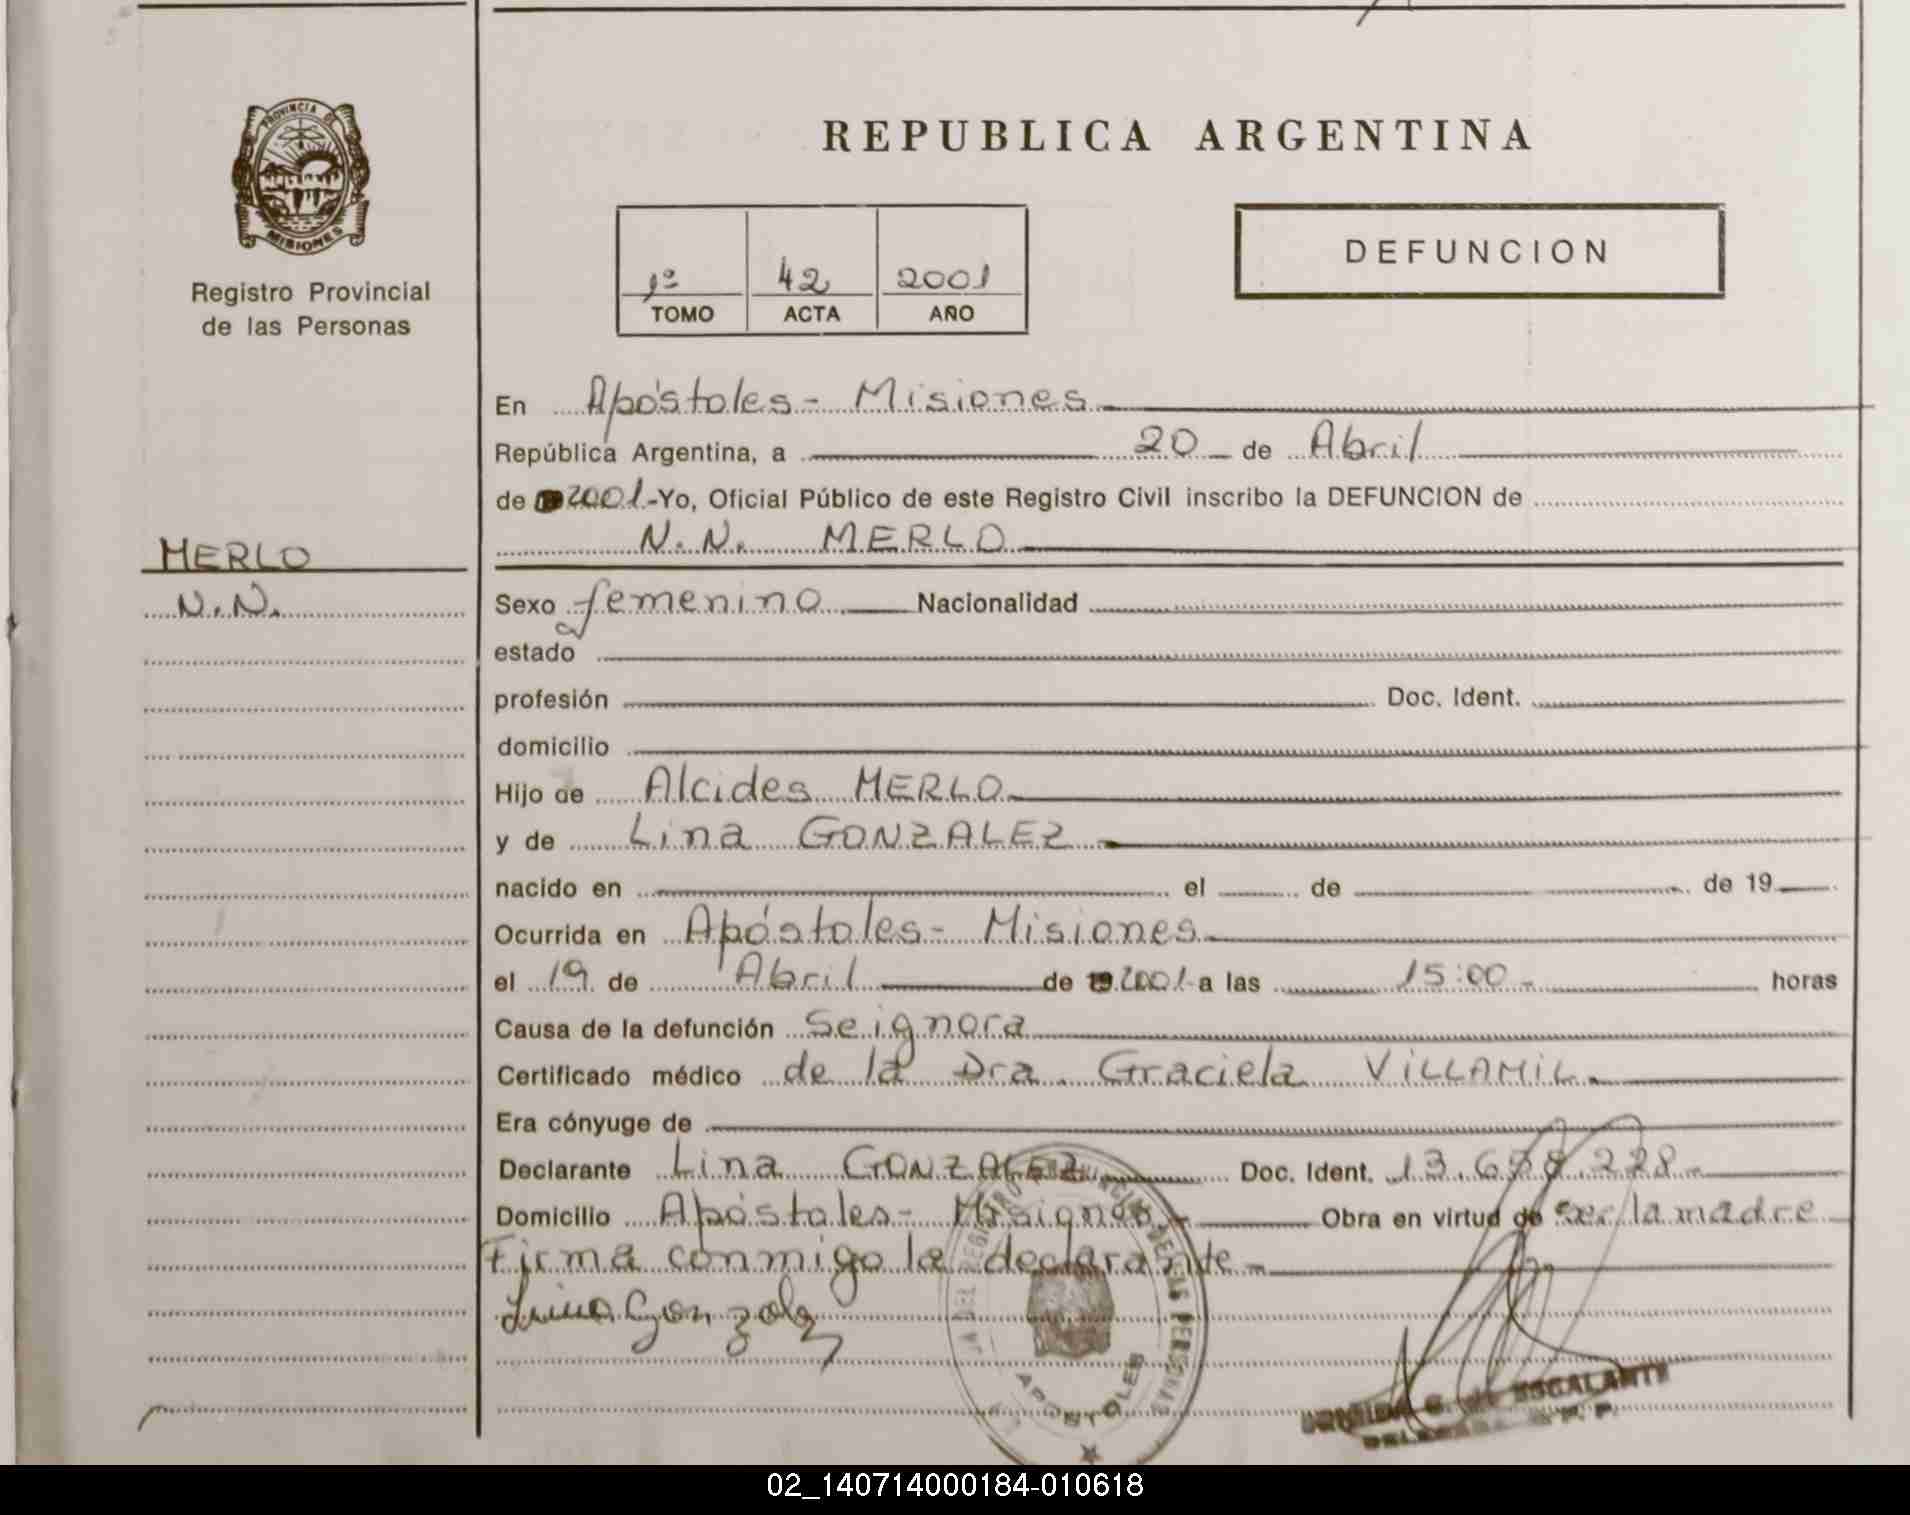 PROVINCIA DE
MISIONES
Registro Provincial
de las Personas
MERLO
N.N.
REPUBLICA ARGENTINA
1º 42 2001
TOMO ACTA AÑO
DEFUNCION
En Apóstoles - Misiones
República Argentina, a 20 de Abril
de 2001.-Yo, Oficial Público de este Registro Civil inscribo la DEFUNCION de
N.N. MERLO
Sexo femenino Nacionalidad
estado
profesión Doc. Ident.
domicilio
Hijo de Alcides MERLO
y de Lina GONZALEZ
nacido en el de de 19
Ocurrida en Apóstoles - Misiones
el 19 de Abril de 2001 a las 15:00 - horas
Causa de la defunción Se ignora
Certificado médico de la Dra. Graciela VILLAMIL
Era cónyuge de
Declarante Lina GONZALEZ Doc. Ident. 13.658.228
Domicilio Apóstoles - Misiones Obra en virtud de ser la madre
Firma conmigo la declarante
Lina Gonzalez
DE LAS PERSONAS
APOSTOLES
DE ESCALANTE
02_140714000184-010618